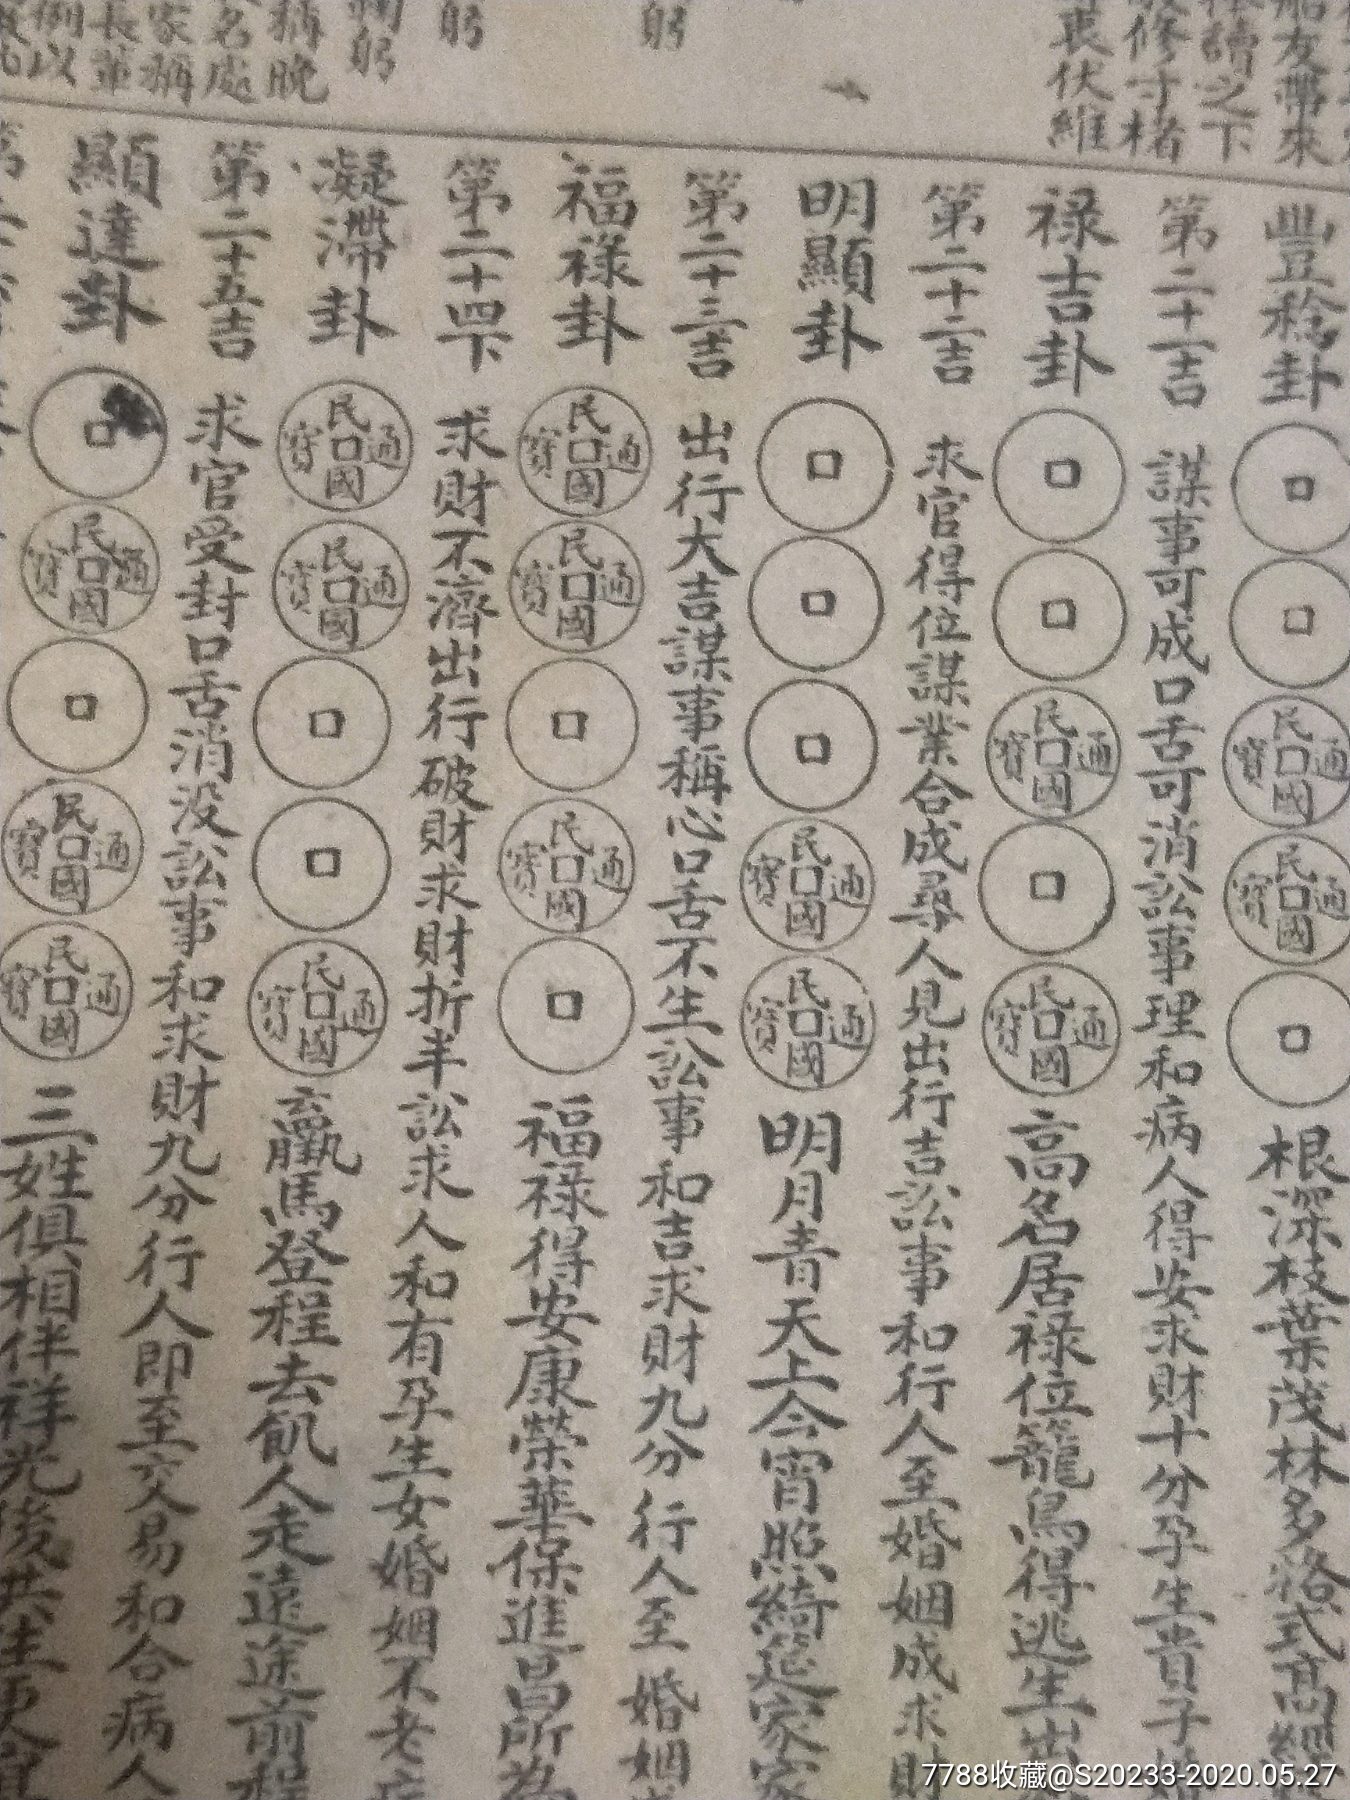 船友帶來
讀之下
修寸楮
伏維
躬
躬
躬
稱晚
名處
家稱
長輩
例以
豐稔卦
民國通寶
民國通寶
根深枝葉茂林多
第二十一吉
謀事可成口舌可消訟事理和病人得安求財十分孕生貴子
祿吉卦
民國通寶
民國通寶
高名居祿位籠鳥得逃生出
第二十二吉
求官得位謀業合成尋人見出行吉訟事和行人至婚姻成求財
明顯卦
民國通寶
民國通寶
明月青天上今宵照綺筵家家
第二十三吉
出行大吉謀事稱心口舌不生訟事和吉求財九分行人至婚姻
福祿卦
民國通寶
民國通寶
民國通寶
福祿得安康榮華保進昌所為
第二十四下
求財不濟出行破財求財折半訟求人和有孕生女婚姻不老
凝滯卦
民國通寶
民國通寶
民國通寶
羸馬登程去飢人走遠途前程
第二十五吉
求官受封口舌消没訟事和求財九分行人即至交易和合病人
顯達卦
民國通寶
民國通寶
民國通寶
三姓俱相伴祥光後共生
第
7788收藏@S20233-2020.05.27